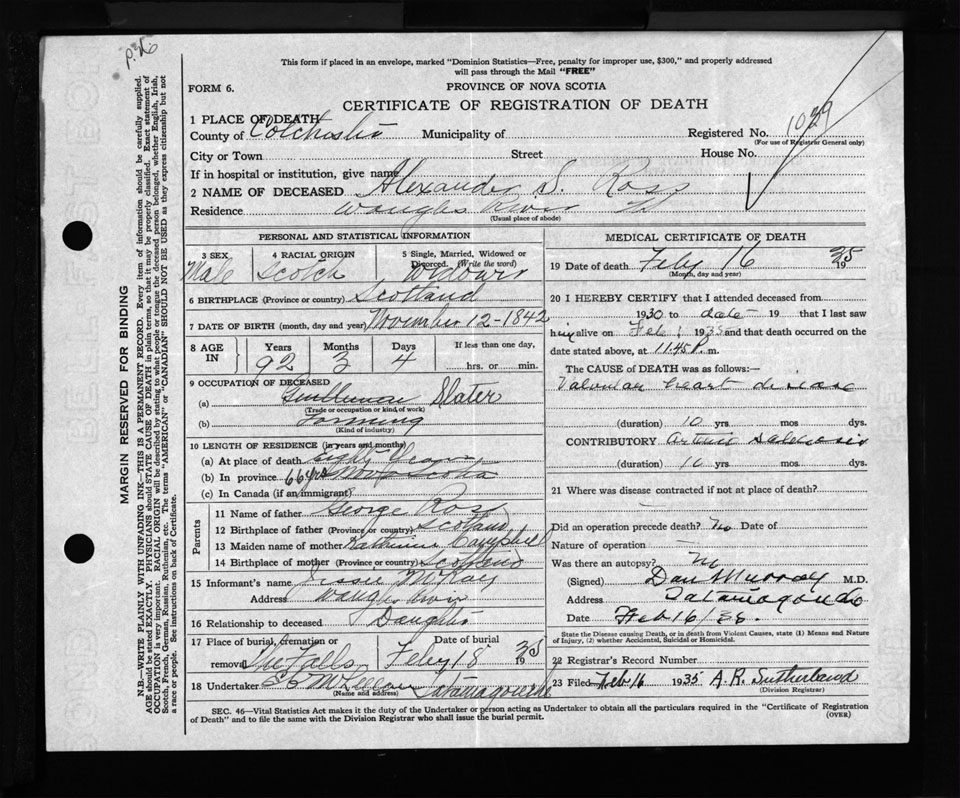 p. 36
This form if placed in an envelope, marked "Dominion Statistics—Free, penalty for improper use, $300," and properly addressed
will pass through the Mail "FREE"
FORM 6.
PROVINCE OF NOVA SCOTIA
CERTIFICATE OF REGISTRATION OF DEATH
1 PLACE OF DEATH
County of Colchester Municipality of Registered No. 1039
(For use of Registrar General only)
City or Town Street House No.
If in hospital or institution, give name
2 NAME OF DECEASED Alexander S. Ross
Residence Waughs River
(Usual place of abode)
PERSONAL AND STATISTICAL INFORMATION
3 SEX 4 RACIAL ORIGIN 5 Single, Married, Widowed or
Divorced. (Write the word)
Male Scotch Widower
6 BIRTHPLACE (Province or country) Scotland
7 DATE OF BIRTH (month, day and year) November 12-1842
8 AGE IN Years Months Days If less than one day,
92 3 4 hrs. or min.
9 OCCUPATION OF DECEASED
(a) Slater
(Trade or occupation or kind of work)
(b) Farming
(Kind of industry)
10 LENGTH OF RESIDENCE (in years and months)
(a) At place of death Eighty Years
(b) In province 66 yrs Nova Scotia
(c) In Canada (if an immigrant)
Parents
11 Name of father George Ross
12 Birthplace of father (Province or country) Scotland
13 Maiden name of mother Katherine Campbell
14 Birthplace of mother (Province or country) Scotland
15 Informant's name Jessie McKay
Address Waughs River
16 Relationship to deceased Daughter
17 Place of burial, cremation or Date of burial
removal The Falls, Feby 18 1935
18 Undertaker McLellan Tatamagouche
(Name and address)
MEDICAL CERTIFICATE OF DEATH
19 Date of death Feby 16 1935
(Month, day and year)
20 I HEREBY CERTIFY that I attended deceased from
1930 to date 19 that I last saw
him alive on Feb 1 1935 and that death occurred on the
date stated above, at 11.45 P. m.
The CAUSE OF DEATH was as follows:—
Valvular heart disease
(duration) 10 yrs mos dys.
CONTRIBUTORY Arterio Sclerosis
(duration) 10 yrs mos. dys.
21 Where was disease contracted if not at place of death?
Did an operation precede death? No Date of
Nature of operation —
Was there an autopsy? No
(Signed) Dan Murray M.D.
Address Tatamagouche
Date Feb 16/35.
State the Disease causing Death, or in death from Violent Causes, state (1) Means and Nature
of Injury, (2) whether Accidental, Suicidal or Homicidal.
22 Registrar's Record Number
23 Filed Feb 16 1935 A. R. Sutherland
(Division Registrar)
SEC. 46—Vital Statistics Act makes it the duty of the Undertaker or person acting as Undertaker to obtain all the particulars required in the "Certificate of Registration
of Death" and to file the same with the Division Registrar who shall issue the burial permit. (OVER)
MARGIN RESERVED FOR BINDING
N.B.—WRITE PLAINLY WITH UNFADING INK—THIS IS A PERMANENT RECORD. Every item of information should be carefully supplied.
AGE should be stated EXACTLY. PHYSICIANS should STATE CAUSE OF DEATH in plain terms, so that it may be properly classified. Exact statement of
OCCUPATION is very important. RACIAL ORIGIN will be described by stating to what people or tongue the deceased person belonged, whether English, Irish,
Scotch, French, German, Russian, Ruthenian, etc. The terms "AMERICAN" or "CANADIAN" SHOULD NOT BE USED as they express citizenship but not
a race or people. See instructions on back of Certificate.